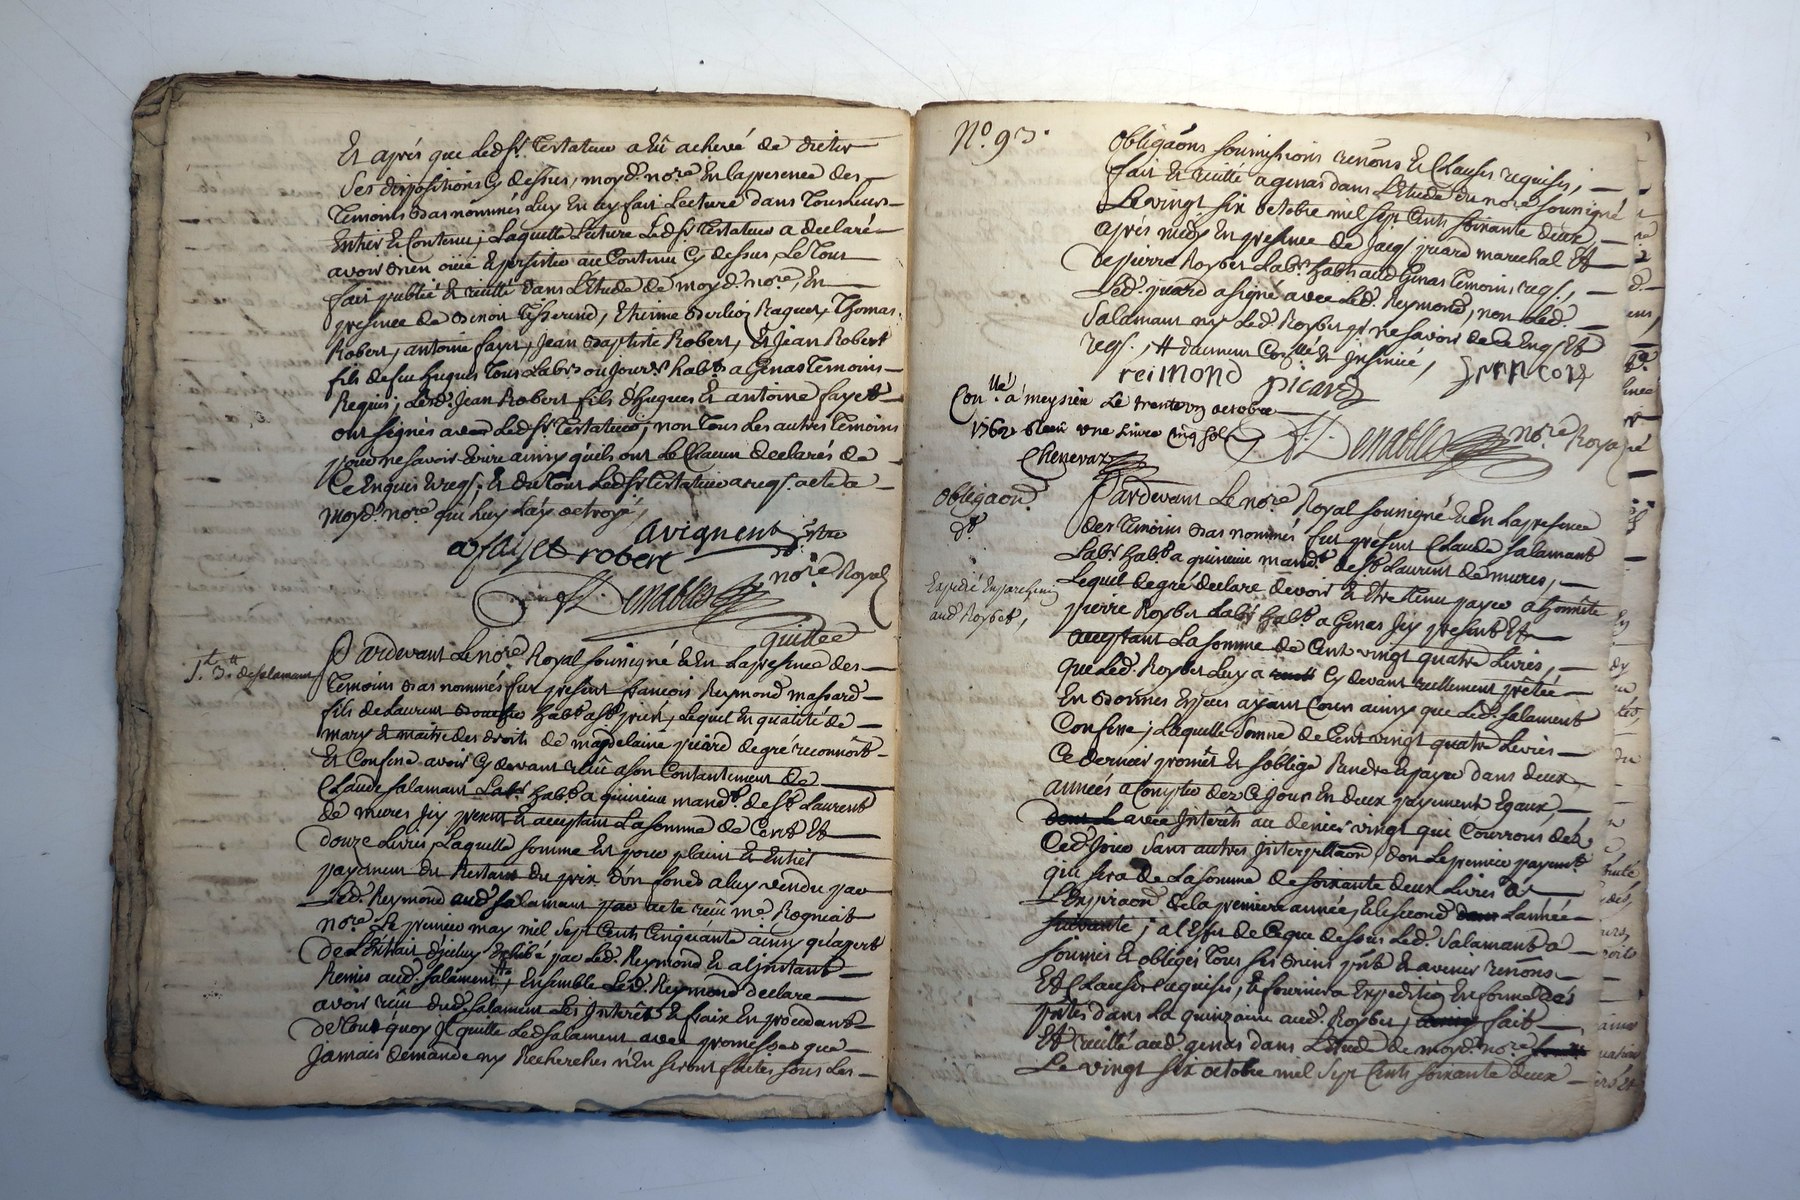 Et aprés que Ledsr. Testateur a Eû achevé de dicter
Ses dispositions Cy dessus, moyd. nore En la presence des
Temoins Bas nommés Luy En ay fait Lecture dans Tout leur
Entier Et Contenu; Laquelle Lecture Ledsr Testateur a declaré
avoir Bien ouïe Et persister au Contenu Cy dessus Le Tout
fait publié Et recitté dans L'Etude de moyd. nore, En
presence de Benoit Tisserand, Etienne Raquer, Thomas
Robert, antoine fayet, Jean Baptiste Robert, Et Jean Robert
fils de feu hugues Tous Labrs ou Journrs habts a Genas Temoins
Requis; Led. Jean Robert fils d'hugues Et antoine fayet
ont signés avec Ledsr Testateur, non Tous Les autres Temoins
pour ne savoir Ecrire ainsy qu'ils ont Le Chacun declarés de
Ce Enquis Et reqs. Et du Tout Ledsr Testateur a reqs. acte a
moyd. nore qui Luy L'ay octroyé,
avignent
a fayet robert
nore Royal
quittce
Pardevant Le nore Royal soussigné Et En La presence des
de Salamant
Temoins Bas nommés fut present françois Reymond massard
fils de Laurent habt a st priest, Lequel En qualité de
mary Et maitre des droits de magdelaine picard de gré reconnoit
Et Confesse avoir Cy devant reçu a son Contentement de
Claude Salamant Labr habt a quincieu mandt. de st Laurent
de mures Icy present Et acceptant La somme de Cent Et
douze Livres, Laquelle somme Est pour plain Et Entier
payement du Restant du prix d'un fonds a luy vendu par
Led. Reymond aud. Salamant par acte reçu me. Rogniat
nore. Le premier may mil Sept Cents Cinquante ainsy qu'apert
de L'Extrait d'iceluy Exhibé par Led. Reymond Et a L'instant
Remis aud. Salamant, Ensemble Led. Reymond declare
avoir reçu dud. Salamant Les Interêts Et fraix En procedant
de Tout quoy Il quitte Led Salamant avec promesses que
Jamais demande ny Recherches n'En seront faites sous Les
No. 93.
obligaons soumissions renons Et Clauses requises,
fait Et recitté a genas dans L'Etude du nore soussigné
Le vingt six octobre mil sept Cents soixante deux
aprés midy En presence de Jacqs picard marechal Et
de pierre Roybet Labrs habts aud Genas Temoins reqs.,
Led. picard a signé avec Led. Reymond, non Led.
Salamant ny Led. Roybet pr ne savoir de ce Enqs Et
reqs.,
reimond picard
Conllé. á meysieu Le trente un octobre
1762 Receu une Livre cinq sols
nore Royal
Chenevaz
obligaon
Pardevant Le nore Royal soussigné Et En La presence
des Temoins Bas nommés fut present Claude Salamant
Labr habt a quincieu mandt. de st Laurent de mures,
Lequel de gré declare devoir Et Etre Tenu payer a honnête
Expedié En parchemin
aud Roybet,
pierre Roybet Labr habt a Genas Icy present Et
acceptant La somme de Cent vingt quatre Livres,
que Led. Roybet Luy a Cy devant reellement prêtée
En Bonnes Especes ayant Cours ainsy que Led. Salamant
Confesse; Laquelle somme de Cent vingt quatre Livres
Ce dernier promet Et s'oblige Rendre Et payer dans deux
années a Compter dez Ce Jour En deux payement Egaux,
avec Interêts au denier vingt qui Courrons déz
Ced. Jour Sans autres Interpellaon, don Le premier payent.
qui sera de La somme de soixante deux Livres a
L'Expiraon de La premiere année, Et Le second L'année
suivante; a L'Effet de Ce que dessus Led. Salamant a
soumis Et obligés Tous ses Biens pnts Et avenir renons
Et Clauses requises, Et fournira Expedition En forme des
pntes dans La quinzaine aud. Roybet, fait
Et recitté aud genas dans L'Etude de moyd. nore
Le vingt six octobre mil Sept Cents soixante deux